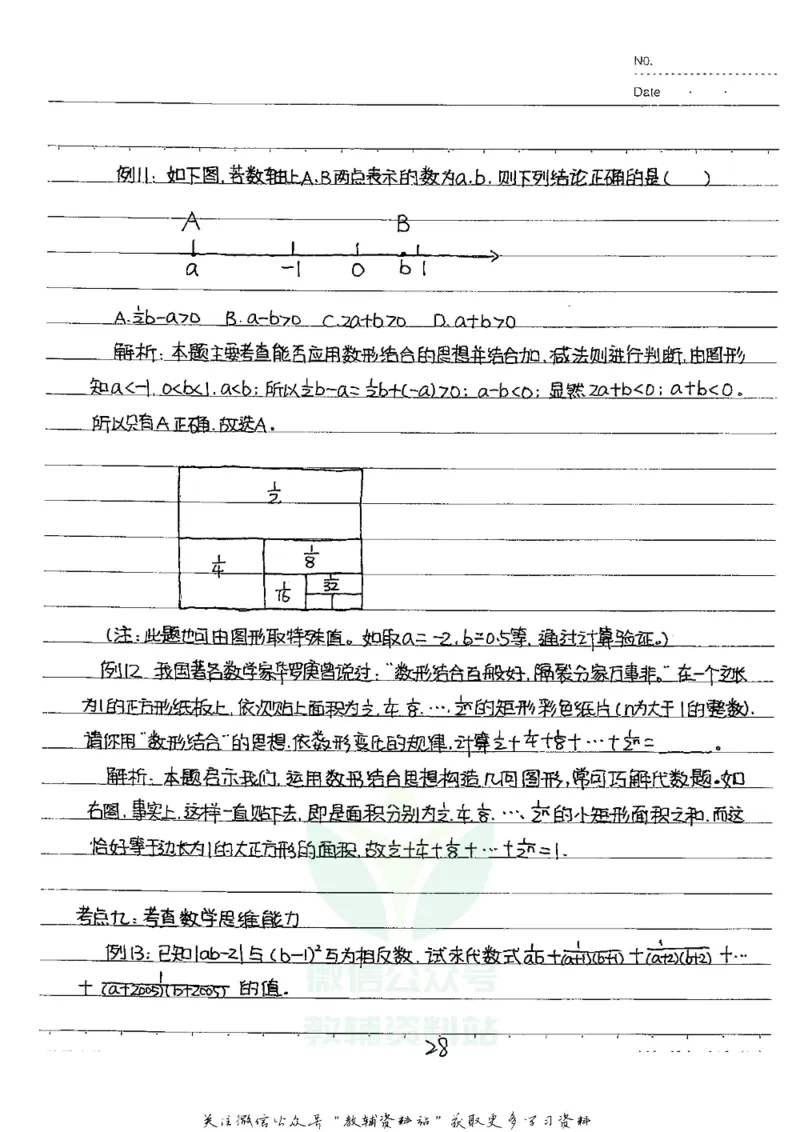 No.
Date · ·
例11: 如下图,若数轴上A、B两点表示的数为a、b, 则下列结论正确的是( )
A B
a -1 0 b 1
A.½b-a>0 B.a-b>0 C.2a+b>0 D.a+b>0
解析: 本题主要考查能否应用数形结合的思想并结合加、减法则进行判断,由图形
知a<-1, 0<b<1, a<b; 所以½b-a=½b+(-a)>0; a-b<0; 显然2a+b<0; a+b<0。
所以只有A正确,故选A。
1/2
1/4 1/8
1/16 1/32
(注:此题也可由图形取特殊值。如取a=-2,b=0.5等,通过计算验证。)
例12 我国著名数学家华罗庚曾说过:“数形结合百般好,隔裂分家万事非。”在一个边长
为1的正方形纸板上,依次贴上面积为1/2,1/4,1/8,…,1/2ⁿ的矩形彩色纸片(n为大于1的整数).
请你用“数形结合”的思想,依数形变化的规律,计算1/2+1/4+1/8+…+1/2ⁿ=____。
解析: 本题启示我们,运用数形结合思想构造几何图形,常可巧解代数题。如
右图,事实上,这样一直贴下去,即是面积分别为1/2,1/4,1/8,…,1/2ⁿ的小矩形面积之和,而这
恰好等于边长为1的大正方形的面积,故1/2+1/4+1/8+…+1/2ⁿ=1.
考点九:考查数学思维能力
例13:已知|ab-2|与(b-1)²互为相反数,试求代数式1/ab+1/(a+1)(b+1)+1/(a+2)(b+2)+…
+1/(a+2005)(b+2005)的值.
微信公众号
教辅资料站
28
关注微信公众号“教辅资料站”获取更多学习资料